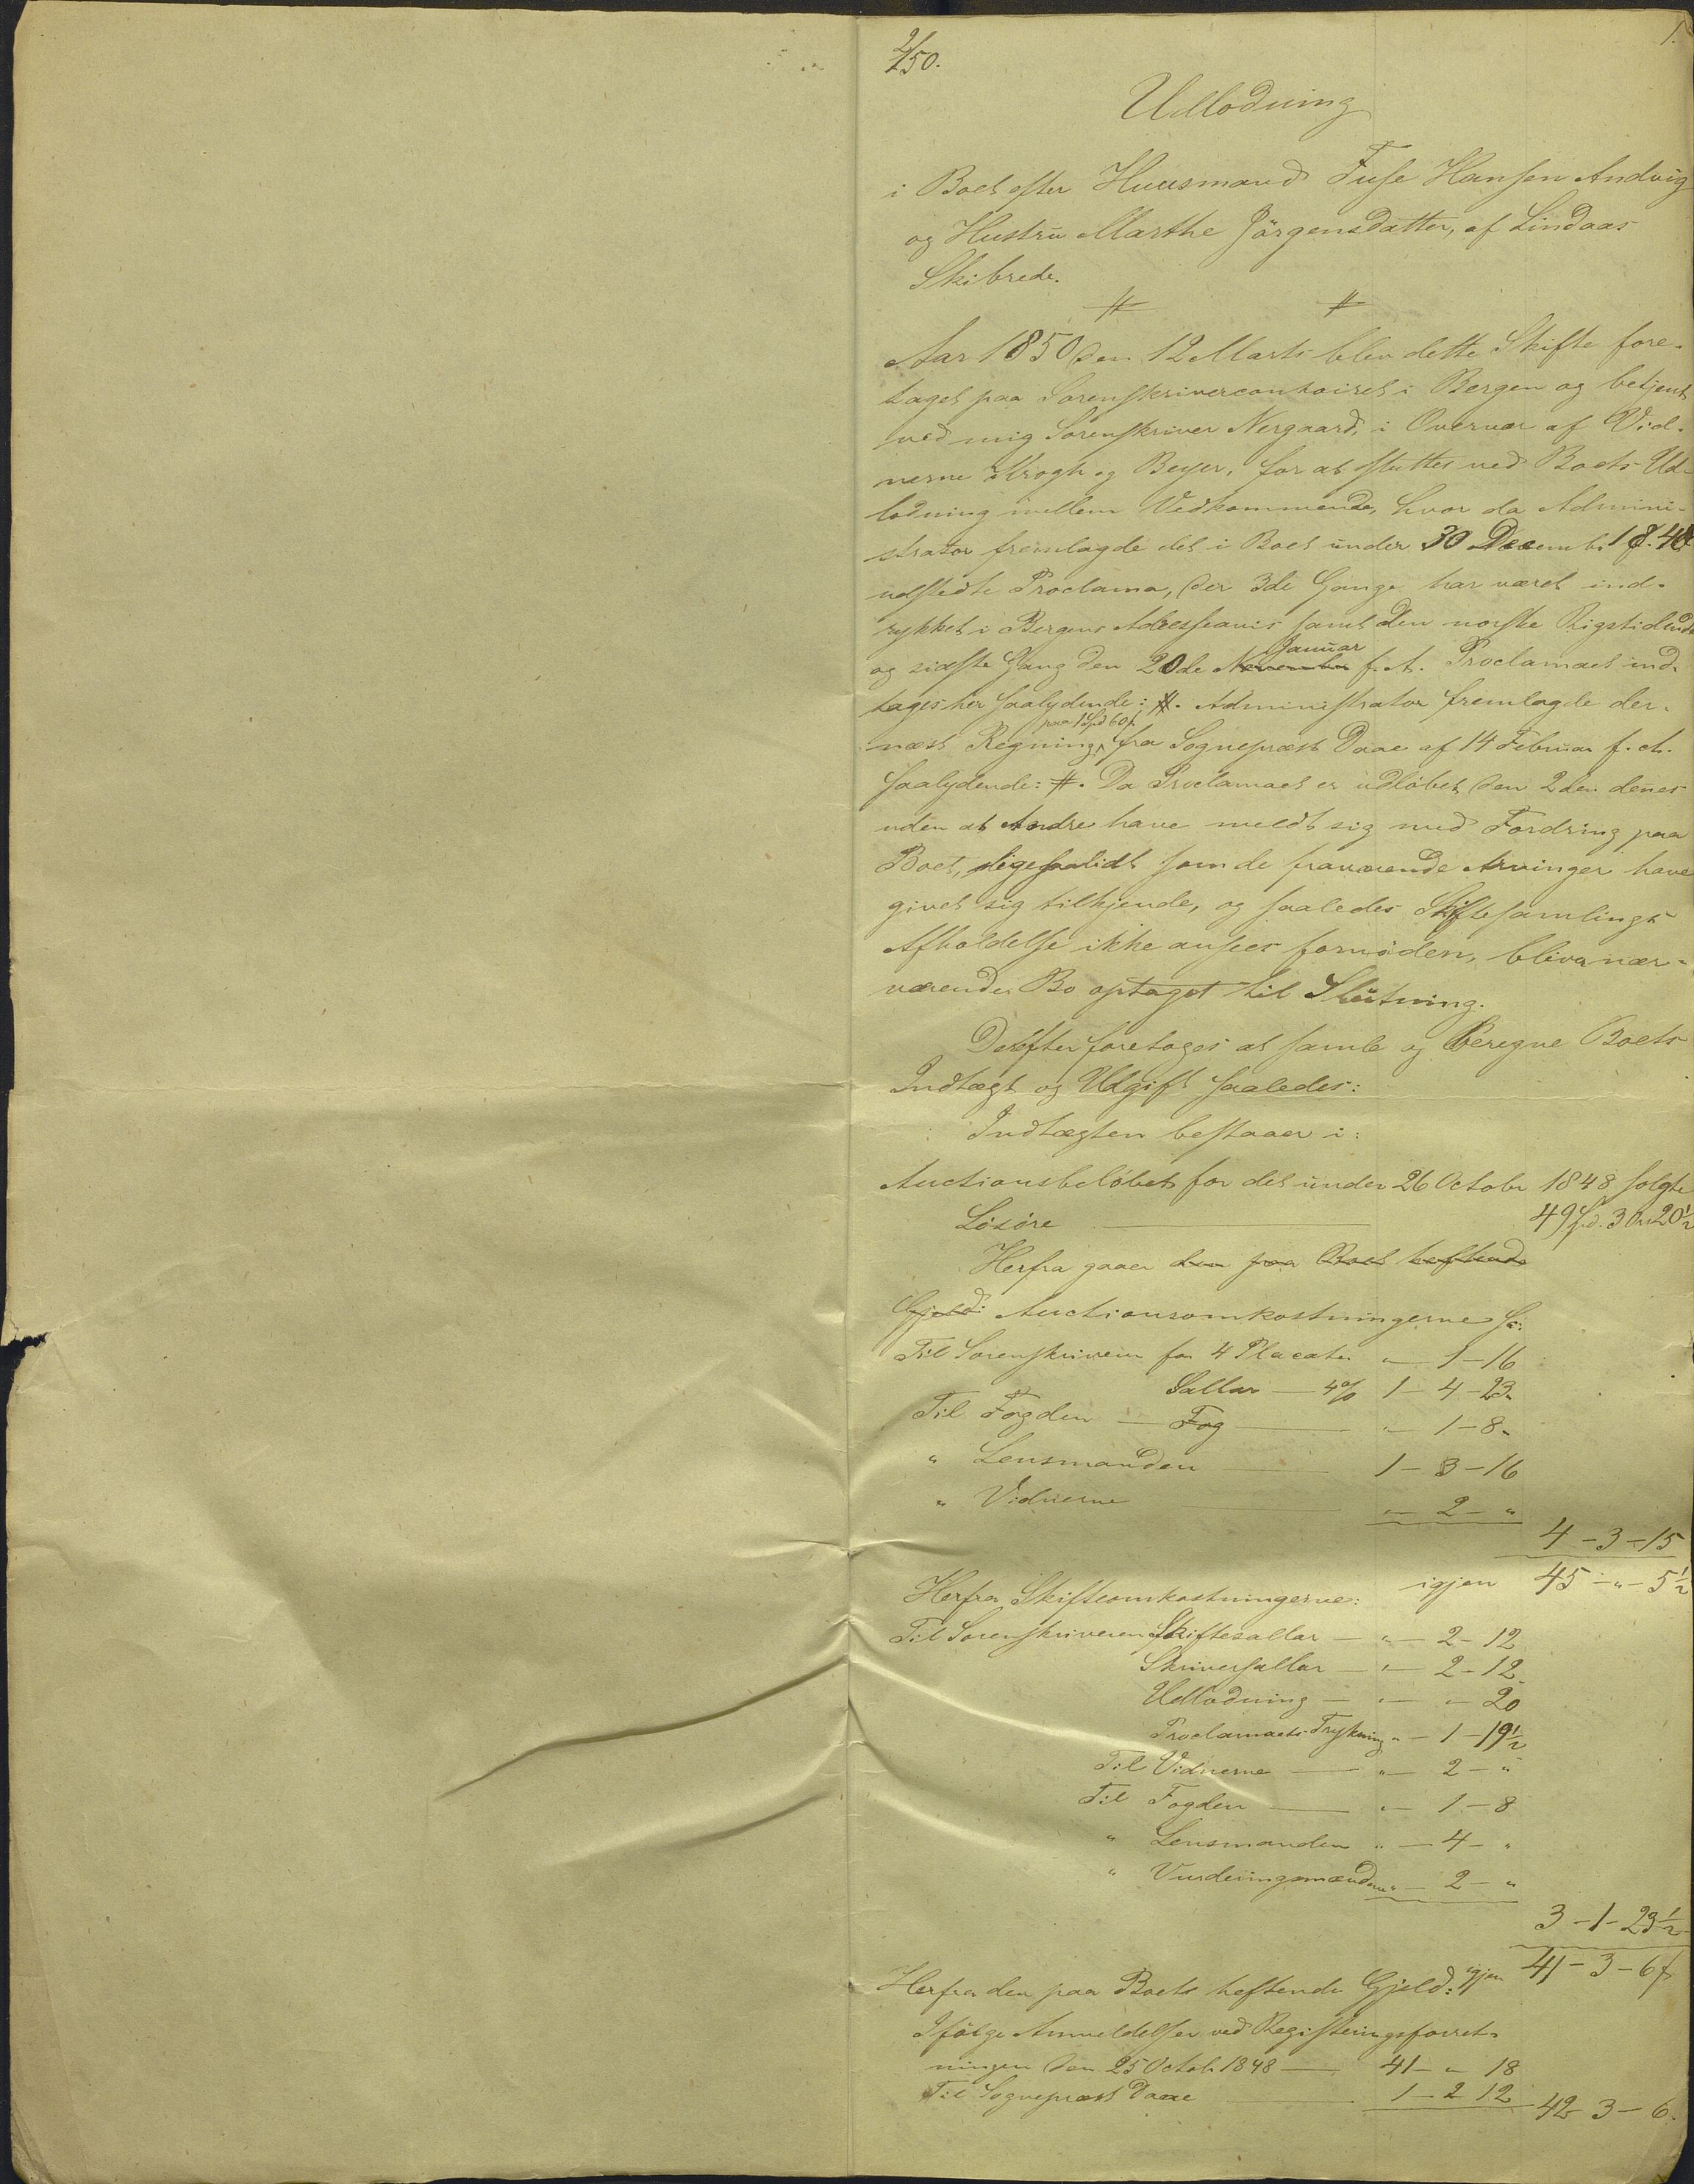 2/50.
1.
Udlodning
i Boet efter Huusmand Fuse Hansen Andvig
og Hustrü Marthe Jörgensdatter, af Lindaas
Skibrede.
# #
Aar 1850 den 12 Marts blev dette Skifte fore-
taget paa Sorenskrivercontoiret i Bergen og betjent
ved mig Sorenskriver Nergaard, i Overvær af Vid-
nerne Krogh og Beyer, for at sluttes ved Boets Ud-
lodning mellem Vedkommende, hvor da Admini-
strator fremlagde det i Boet ünder 30 Decemb. 1848
udstedte Proclama, der 3de Gange har været ind-
rykket i Bergens Adresseavis samt den norske Rigstidende
og sidste Gang den 20de November Januar f. A. Proclamaet ind-
tages her saalydende: #. Administrator fremlagde der-
næst Regning paa 1 Spd 60 s fra Sognepræst Daae af 14 Februar f. A.
saalydende: #. Da Proclamaet er udløbet den 2den denes
uden at Andre have meldt sig med Fordring paa
Boet, ligesaalidt som de fraværende Arvinger have
givet sig tilkjende, og saaledes Skiftesamlings
Afholdelse ikke ansees fornøden, bliver nær-
værende Bo optaget til Slütning.
Derefter foretoges at samle og beregne Boets
Indtægt og Udgift saaledes:
Indtægten bestaaer i:
Auctionsbeløbet for det ünder 26 Octobr 1848 solgte
Løsøre — 49 Spd. 3 Ort 20½
Herfra gaaer den paa Boet heftende
Gjeld: Auctionsomkostningerne sa:
Til Sorenskriveren for 4 Placater " — 1 — 16
Sallar — 4% 1 — 4 — 23
Til Fogden — Fog — " — 1 — 8
" Lensmanden — 1 — 3 — 16
" Vidnerne — " — 2 — "
4 — 3 — 15
igjen 45 — " — 5½
Herfra Skifteomkostningerne:
Til Sorenskriveren Skiftesallar — " — 2 — 12
Skriversallar — " — 2 — 12
Udlodning — " — " — 20
Proclamaets Trykning " — 1 — 19½
Til Vidnerne — " — 2 — "
Til Fogden — " — 1 — 8
" Lensmanden " — 4 — "
" Vurderingsmændene " — 2 — "
3 — 1 — 23½
igjen 41 — 3 — 6 s
Herfra den paa Boets heftende Gjeld:
Ifølge Anmeldelser ved Registeringsforret-
ningen den 25 Octob. 1848 — 41 — " 18
Til Sognepræst Daae — 1 — 2 12 42 — 3 — 6.